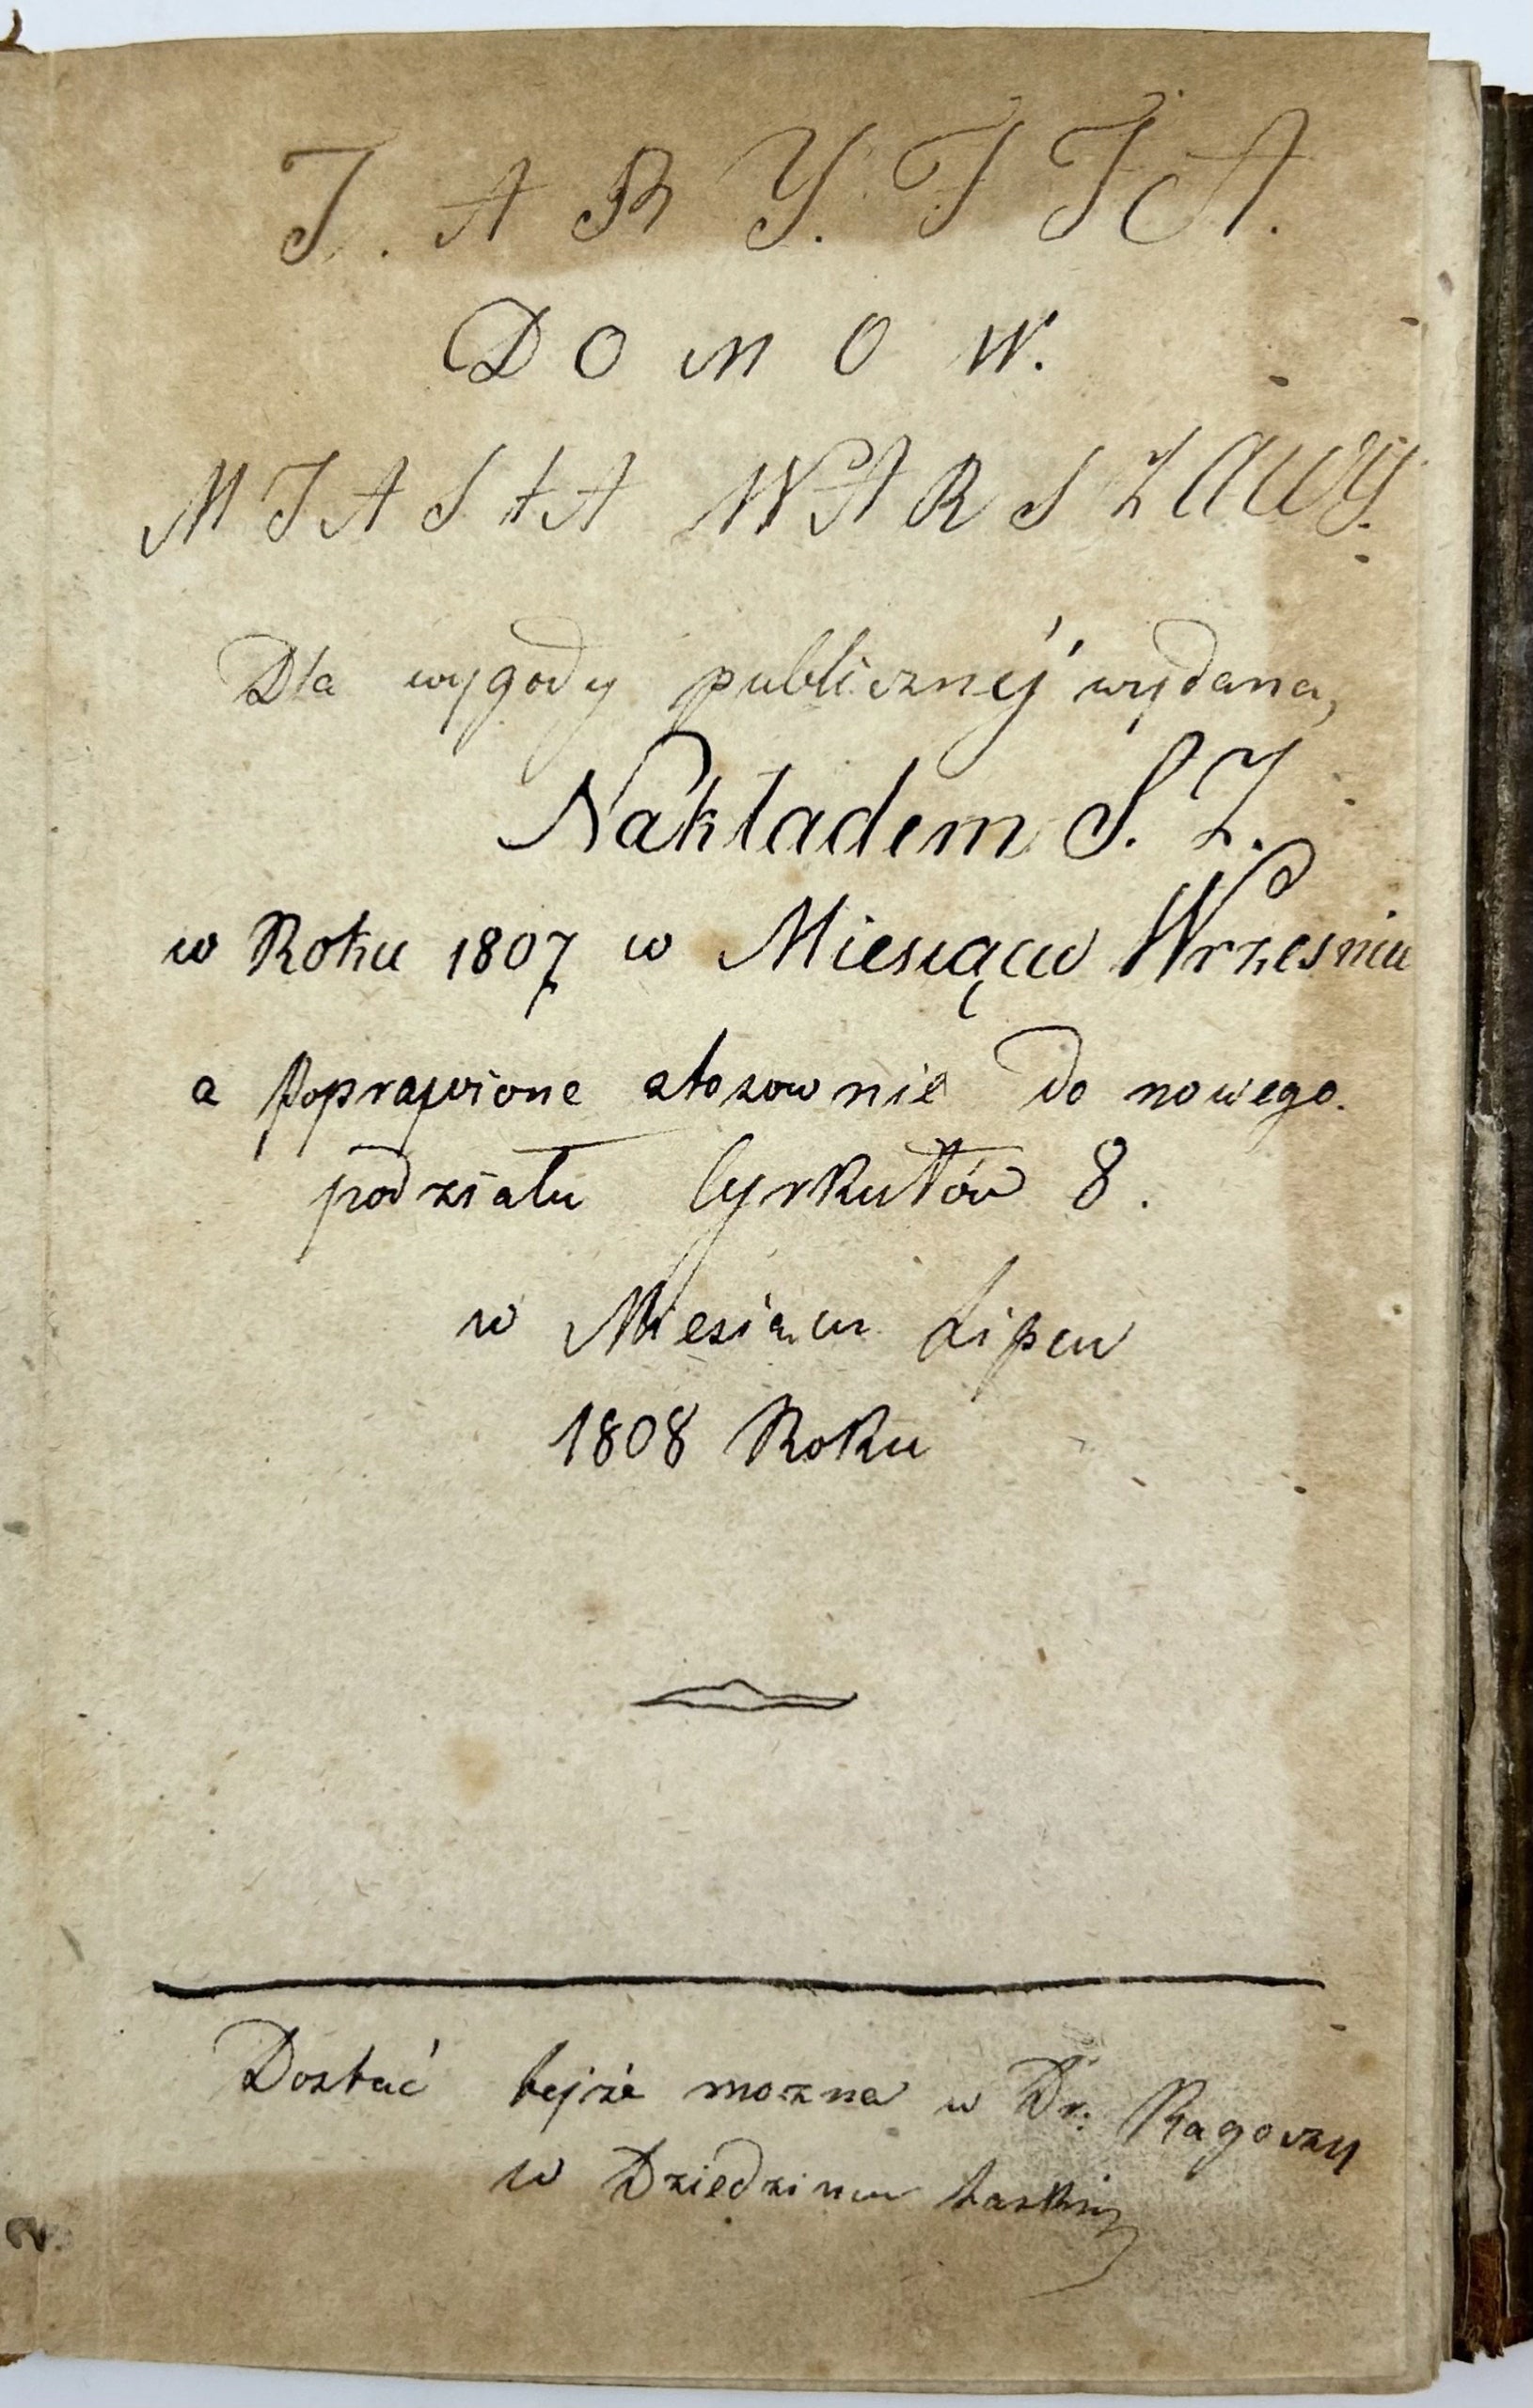 TARYFFA.
DOMOW.
MIASTA WARSZAWY.
Dla wygody publicznéj wydana,
Nakładem S. Z.
w Roku 1807 w Miesiącu Wrzesniu
a Poprawione stosownie do nowego.
podziału Cyrkułów 8.
w Miesiącu Lipcu
1808 Roku
Dostać tejże mozna w Dr: Ragoczy
w Dziedzincu